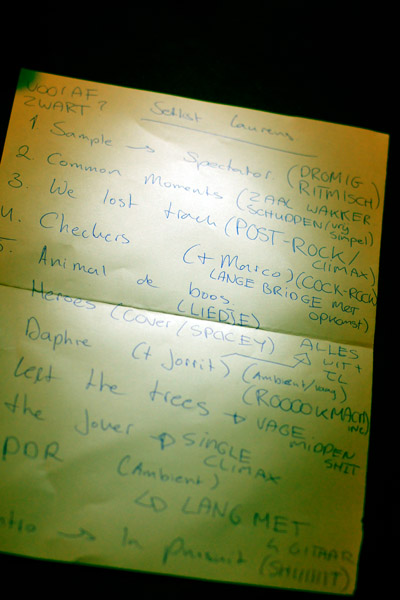 VOORAF
ZWART?
Setlist Laurens
1. Sample → Spectator (DROMIG/RITMISCH)
2. Common Moments (ZAAL WAKKER SCHUDDEN/vrij simpel)
3. We lost track (POST-ROCK/CLIMAX)
4. Checkers (+ Marco) (COCK-ROCK LANGE BRIDGE MET OPKOMST)
5. Animal de boos. (LIEDJE)
Heroes (COVER/SPACEY)
ALLES UIT + TL
Daphne (+ Jorrit) (Ambient/)
left the trees → VAGE MIDDEN SHIT
(ROOOOKMACHINE)
the → SINGLE CLIMAX
(Ambient)
→ LANG MET
4 GITAAR
→ In pursuit